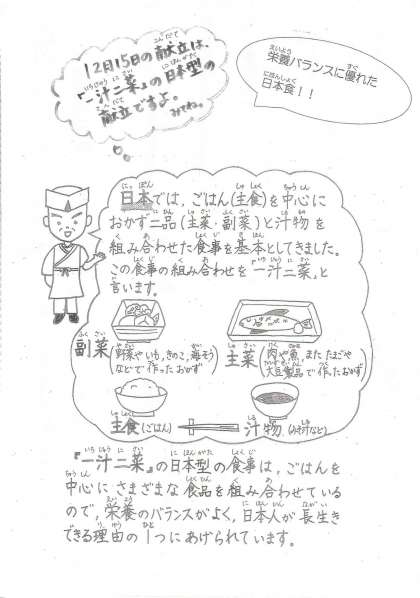 12月15日の献立は、
『一汁二菜』の日本型の
献立ですよ。
みてね。
栄養バランスに優れた
日本食!!
日本では,ごはん(主食)を中心に
おかず二品(主菜・副菜)と汁物を
組み合わせた食事を基本としてきました。
この食事の組み合わせを『一汁二菜』と
言います。
副菜(野菜やいも,きのこ,海そう
などで作ったおかず)
主菜(肉や魚,またたまごや
大豆製品で作ったおかず)
主食(ごはん)
汁物(みそ汁など)
『一汁二菜』の日本型の食事は,ごはんを
中心にさまざまな食品を組み合わせている
ので,栄養のバランスがよく,日本人が長生き
できる理由の1つにあげられています。